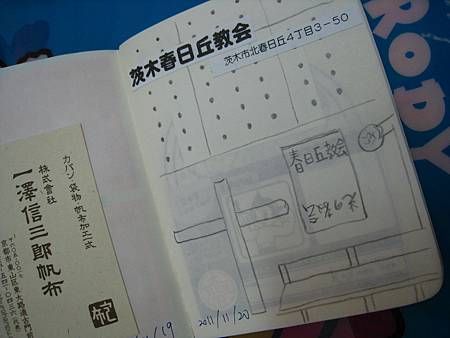 茨木春日丘教会
茨木市北春日丘4丁目3-50
春日丘教会
光の教会
2011/11/20
/19
カバン 袋物 帆布加工一式
株式會社
一澤信三郎帆布
RODY